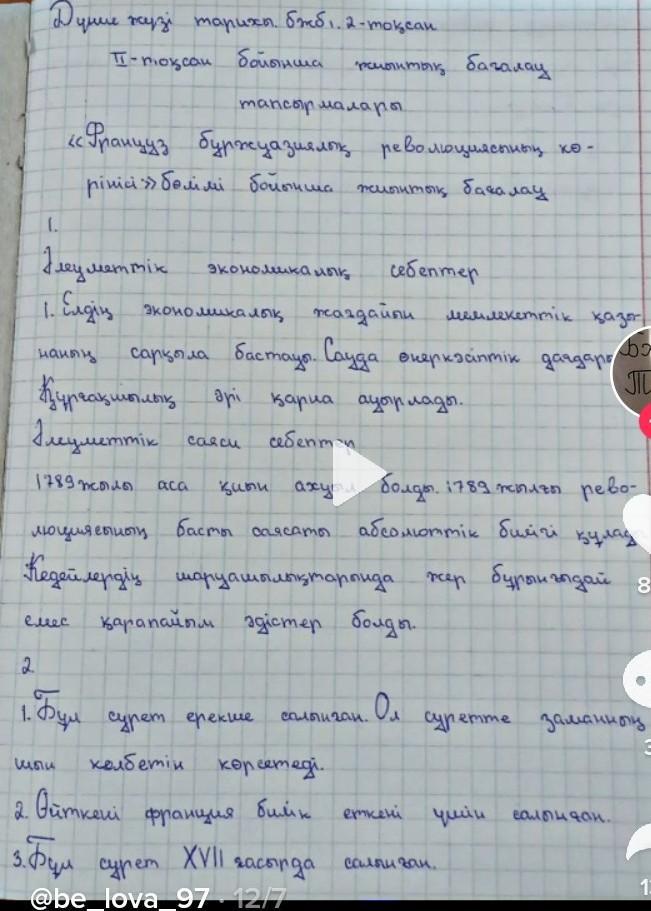 Дүние жүзі тарихы. бжб1. 2-тоқсан
II-тоқсан бойынша жиынтық бағалау
тапсырмалары
«Француз буржуазиялық революциясының кө-
рінісі» бөлімі бойынша жиынтық бағалау
1.
Әлеуметтік экономикалық себептер
1. Елдің экономикалық жағдайын мемлекеттік қазы-
наның сарқыла бастауы. Сауда өнеркәсіптік дағдары
Құрғақшылық әрі қарпа ауырлады.
Әлеуметтік саяси себептер
1789 жылы аса қиын ахуал болды. 1789 жылғы рево-
люциясының басты саясаты абсолюттік билігі құлады
Кедейлердің шаруашылықтарында жер бұрынғыдай
емес қарапайым әдістер болды.
2
1. Бұл сурет ерекше салынған. Ол суретте заманның
шын келбетін көрсетеді.
2. Өйткені франция билік еткені үшін салынған.
3. Бұл сурет XVII ғасырда салынған.
@be_lova_97 · 12/7